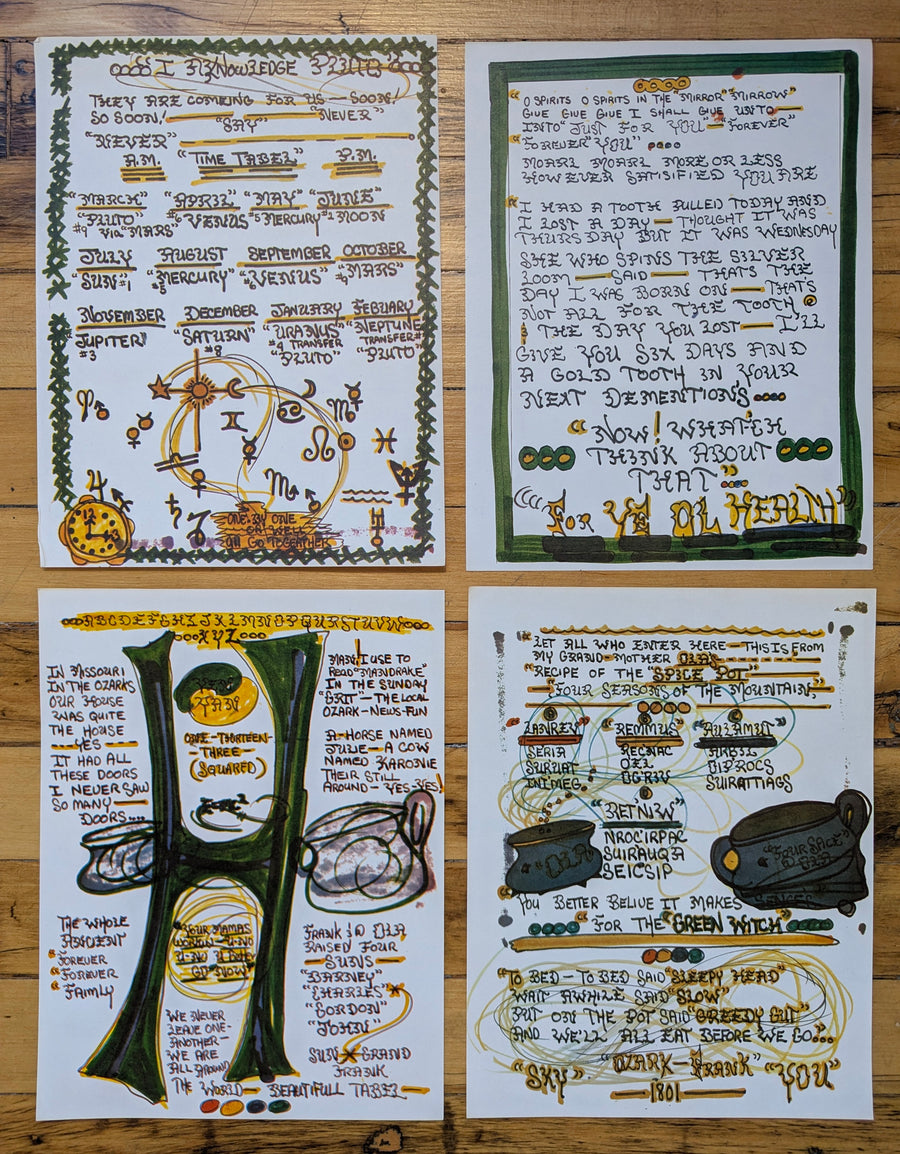 I AKNOWLEDGE PLUTO
THEY ARE COMEING FOR US — SOON!
SO SOON! — "SAY" — "NEVER"
"NEVER"
A.M. "TIME TABEL" P.M.
"MARCH" "APRIL" "MAY" "JUNE"
"PLUTO" #6 VENUS #5 MERCURY #2 MOON
#9 VIA "MARS"
JULY AUGUST SEPTEMBER OCTOBER
SUN #1 "MERCURY" "VENUS" "MARS"
NOVEMBER DECEMBER JANUARY FEBUARY
JUPITER" "SATURN" "URANUS" "NEPTUNE
#3 #8 #4 TRANSFER TRANSFER #
"PLUTO" "PLUTO"
12
3
ONE BY ONE
OR WELL
ALL GO TOGEATHER
"O SPIRITS O SPIRITS IN THE "MIRROR" "MIRROW"
GIVE GIVE GIVE I SHALL GIVE UNTO —
INTO" JUST FOR YOU — "FOREVER"
"FOREVER" YOU"
MOARL MOARL MORE OR LESS
HOWEVER SATISIFIED YOU ARE
"I HAD A TOOTH PULLED TODAY AND
I LOST A DAY — THOUGHT IT WAS
THURSDAY BUT IT WAS WEDNESDAY
SHE WHO SPINS THE SILVER
LOOM — SAID — THATS THE
DAY I WAS BORN ON — THAT'S
NOT ALL FOR THE TOOTH
& THE DAY YOU LOST — I'LL
GIVE YOU SIX DAYS AND
A GOLD TOOTH IN YOUR
NEXT DEMENTIONS
"NOW! WHAT'EH
THINK ABOUT
THAT"
"FOR YE OL HEALTH"
ABCDEFGHIJKLMNOPQRSTUVW
XYZ
IN MISSOURI
IN THE OZARKS
OUR HOUSE
WAS QUITE
THE HOUSE
— YES —
IT HAD ALL
THESE DOORS
I NEVER SAW
SO MANY —
DOORS...
THE WHOLE
"FOREVER
"FOREVER
"FAIMLY
YAN
ONE-THIRTEEN-
THREE-
(SQUARED)
E=MC²
"YOUR MAMAS
WORKIN — U-NO
GO NOW"
WE NEVER
LEAVE ONE-
ANOTHER-
WE ARE
ALL AROUND
THE WORLD — BEAUTIFULL TABEL —
MAN! I USE TO
READ "MANDRAKE"
IN THE SUNDAY
"GRIT" — THE LOCAL
OZARK-NEWS-FUN
A-HORSE NAMED
JULIE — A COW
NAMED KARONIE
THEIR STILL
AROUND — YES-YES!
FRANK & OLA
RAISED FOUR
— SUNS —
"BARNEY"
"CHARLES"
"GORDON"
"JOHN"
SUN GRAND
FRANK
"LET ALL WHO ENTER HERE — THIS IS FROM
MY GRAND-MOTHER OLA
"RECIPE OF THE "SPICE POT"
— FOUR SEASONS OF THE MOUNTAIN" —
"REMMUS" "NMUTUA"
SERIA RECNAC
SURUAT OEL OIPROCS
INIMEG OGRIV SUIRATTIGAS
"RETNIW"
NROCIRPAC
SUIRAUQA
SEICSIP
"OLA"
"FOUR SPICE"
YOU BETTER BELIUE IT MAKES SENCES
FOR THE "GREEN WITCH"
"TO BED — TO BED SAID "SLEEPY HEAD"
WAIT AWHILE SAID "SLOW"
PUT ON THE POT SAID "GREEDY GUT"
AND WE'LL ALL EAT BEFORE WE GO...
"SKY" "OZARK — FRANK" "YOU"
— 1801 —